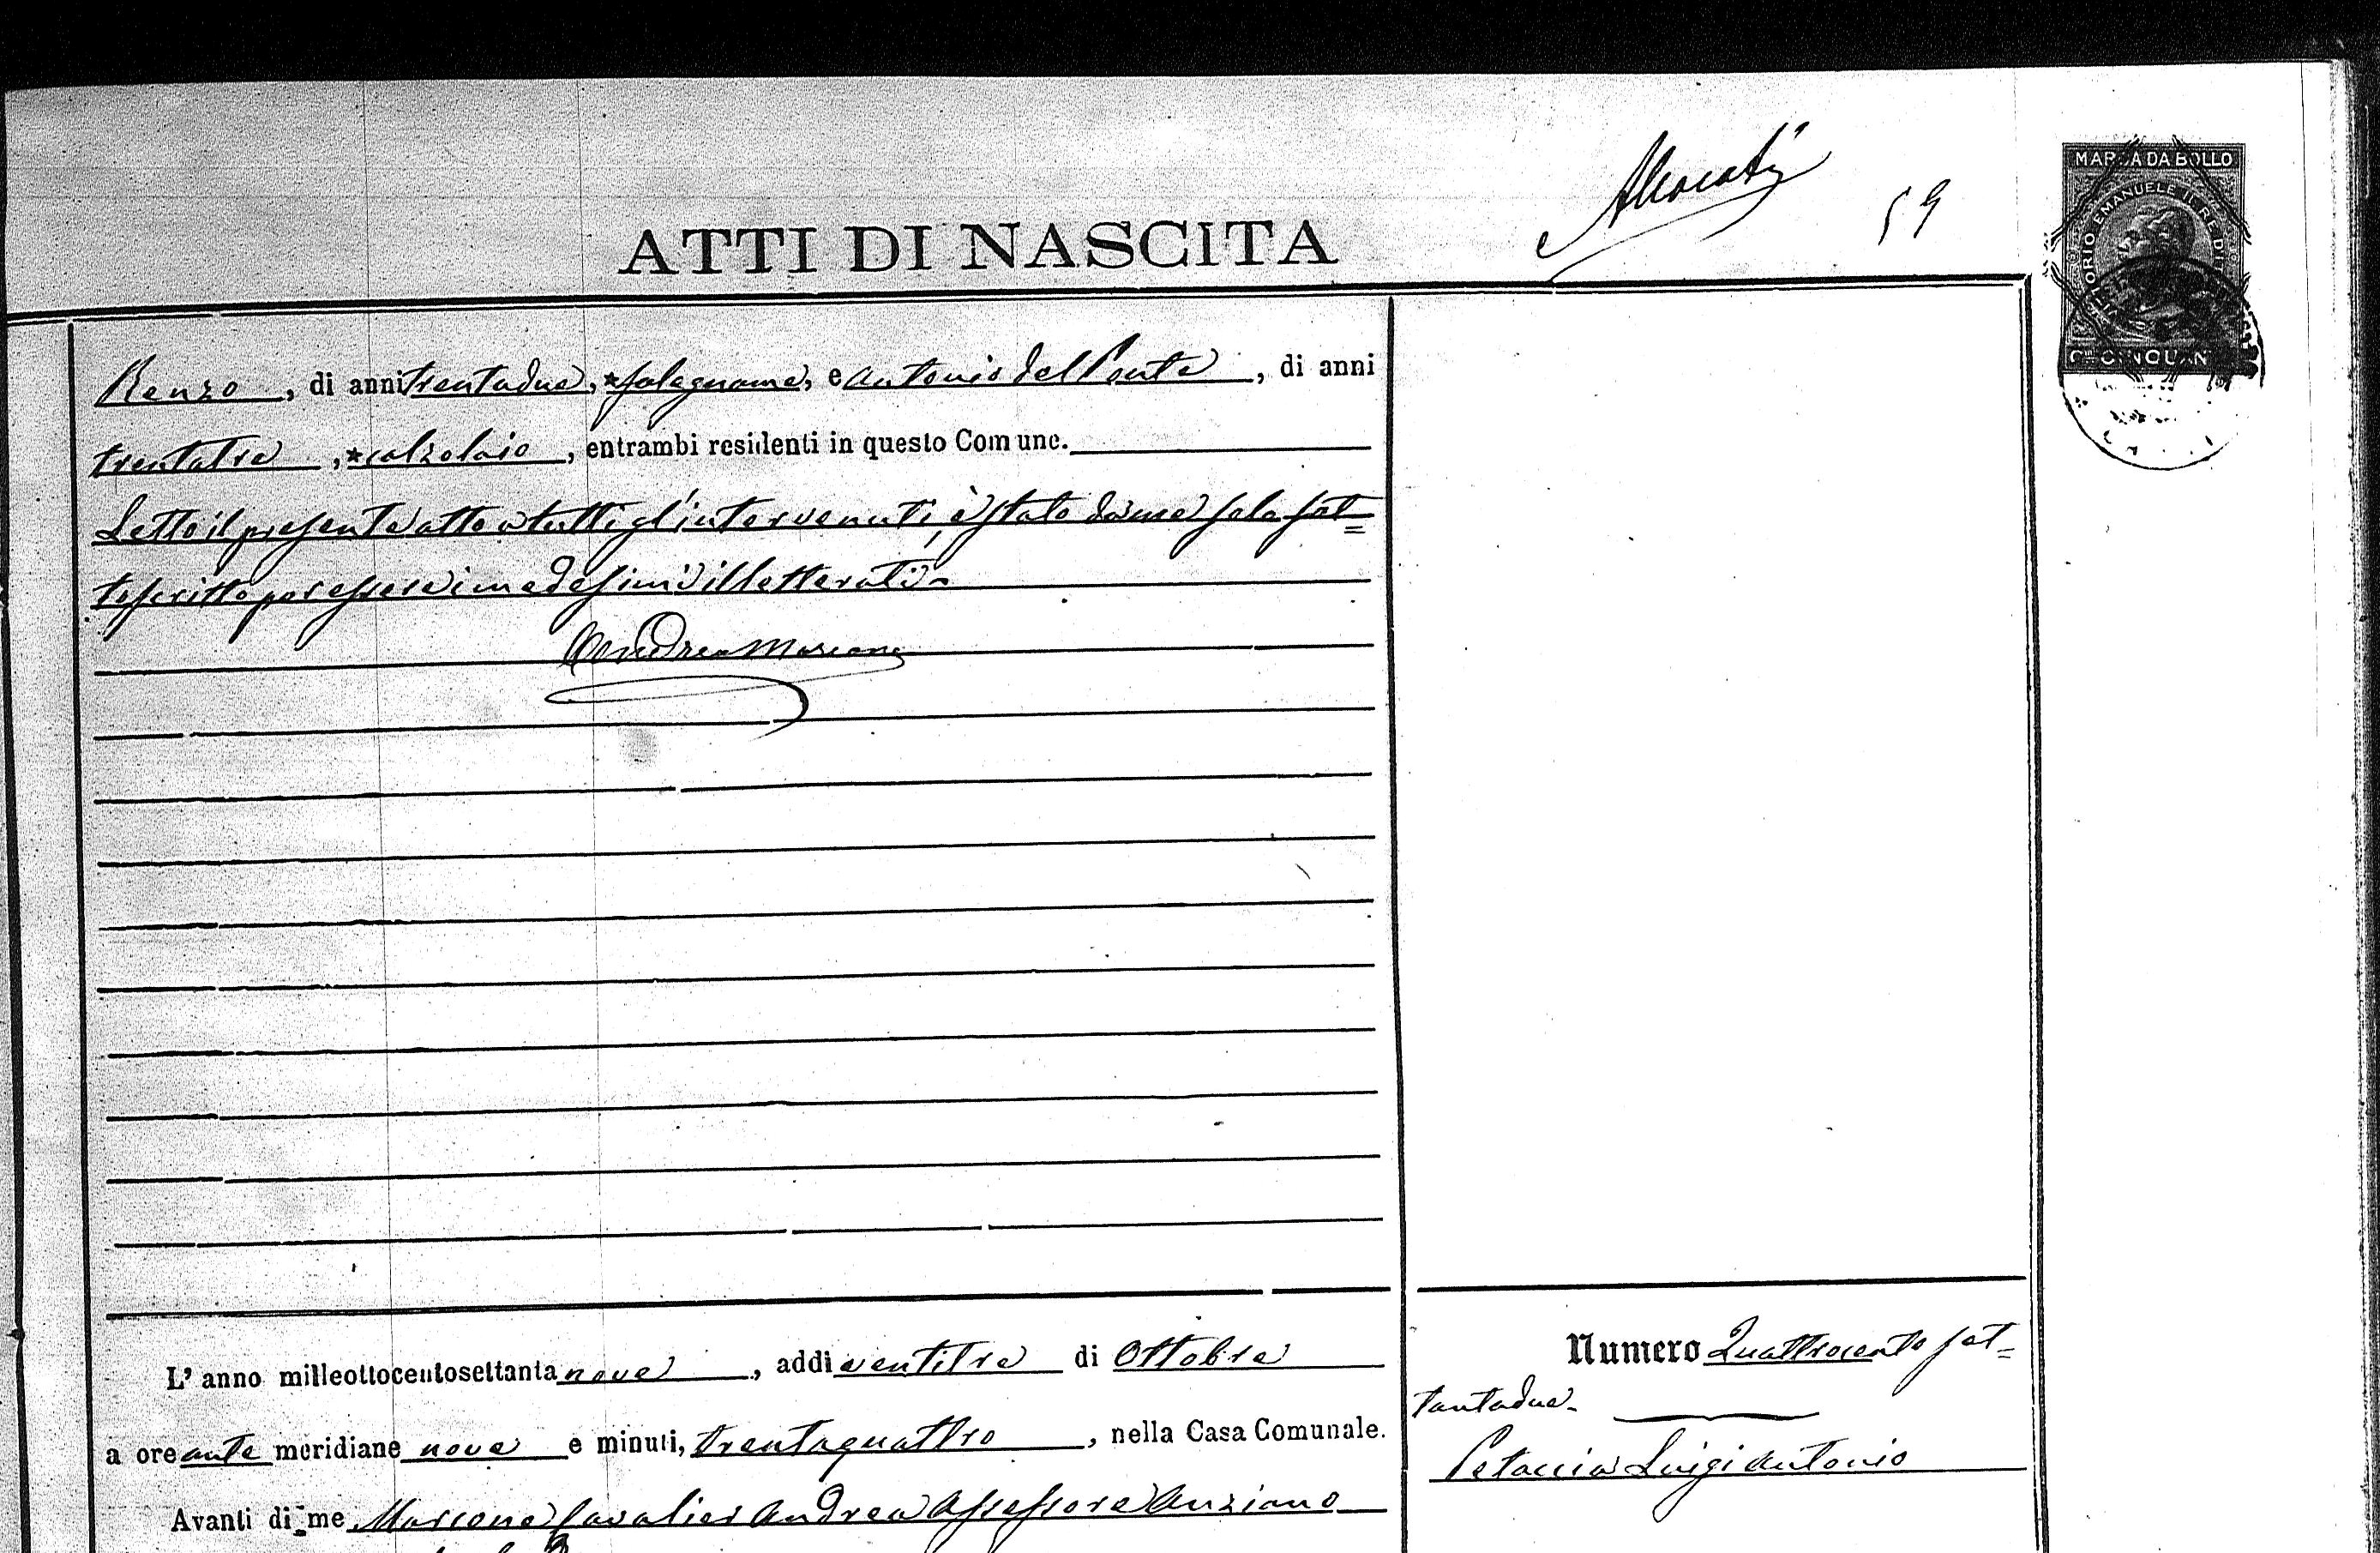 ATTI DI NASCITA
59
MARCA DA BOLLO
VITTORIO EMANUELE II RE D'IT
Renzo, di anni trentadue, *falegname, e Antonio del Ponte, di anni
trentatre, *calzolaio, entrambi residenti in questo Comune.
Letto il presente atto a tutti gl'intervenuti, è stato da me solo sot=
toscritto per essere i medesimi illetterati.
Andrea Marcone
L' anno milleottocentosettantanove, addi ventitre di Ottobre
a ore ante meridiane nove e minuti, trentaquattro, nella Casa Comunale.
Avanti di me Marcone Cavalier Andrea Assessore Anziano
Numero Quattrocento set=
tantadue.
Petaccia Luigi Antonio